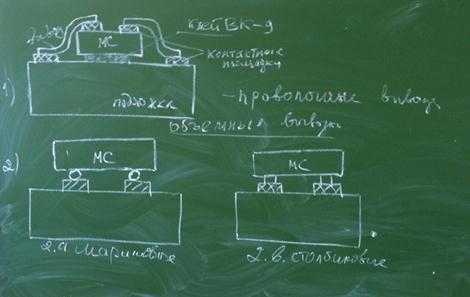 клей ВК-9
МС
контактные
площадки
1)
подложка
- проволочные выводы
объемные выводы
2)
МС
МС
2.а шариковые
2.в. столбиковые